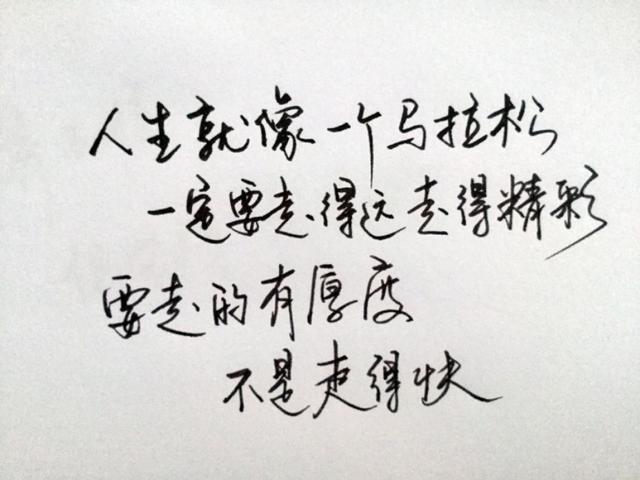 人生就像一个马拉松
一定要走得远走得精彩
要走的有厚度
不是走得快